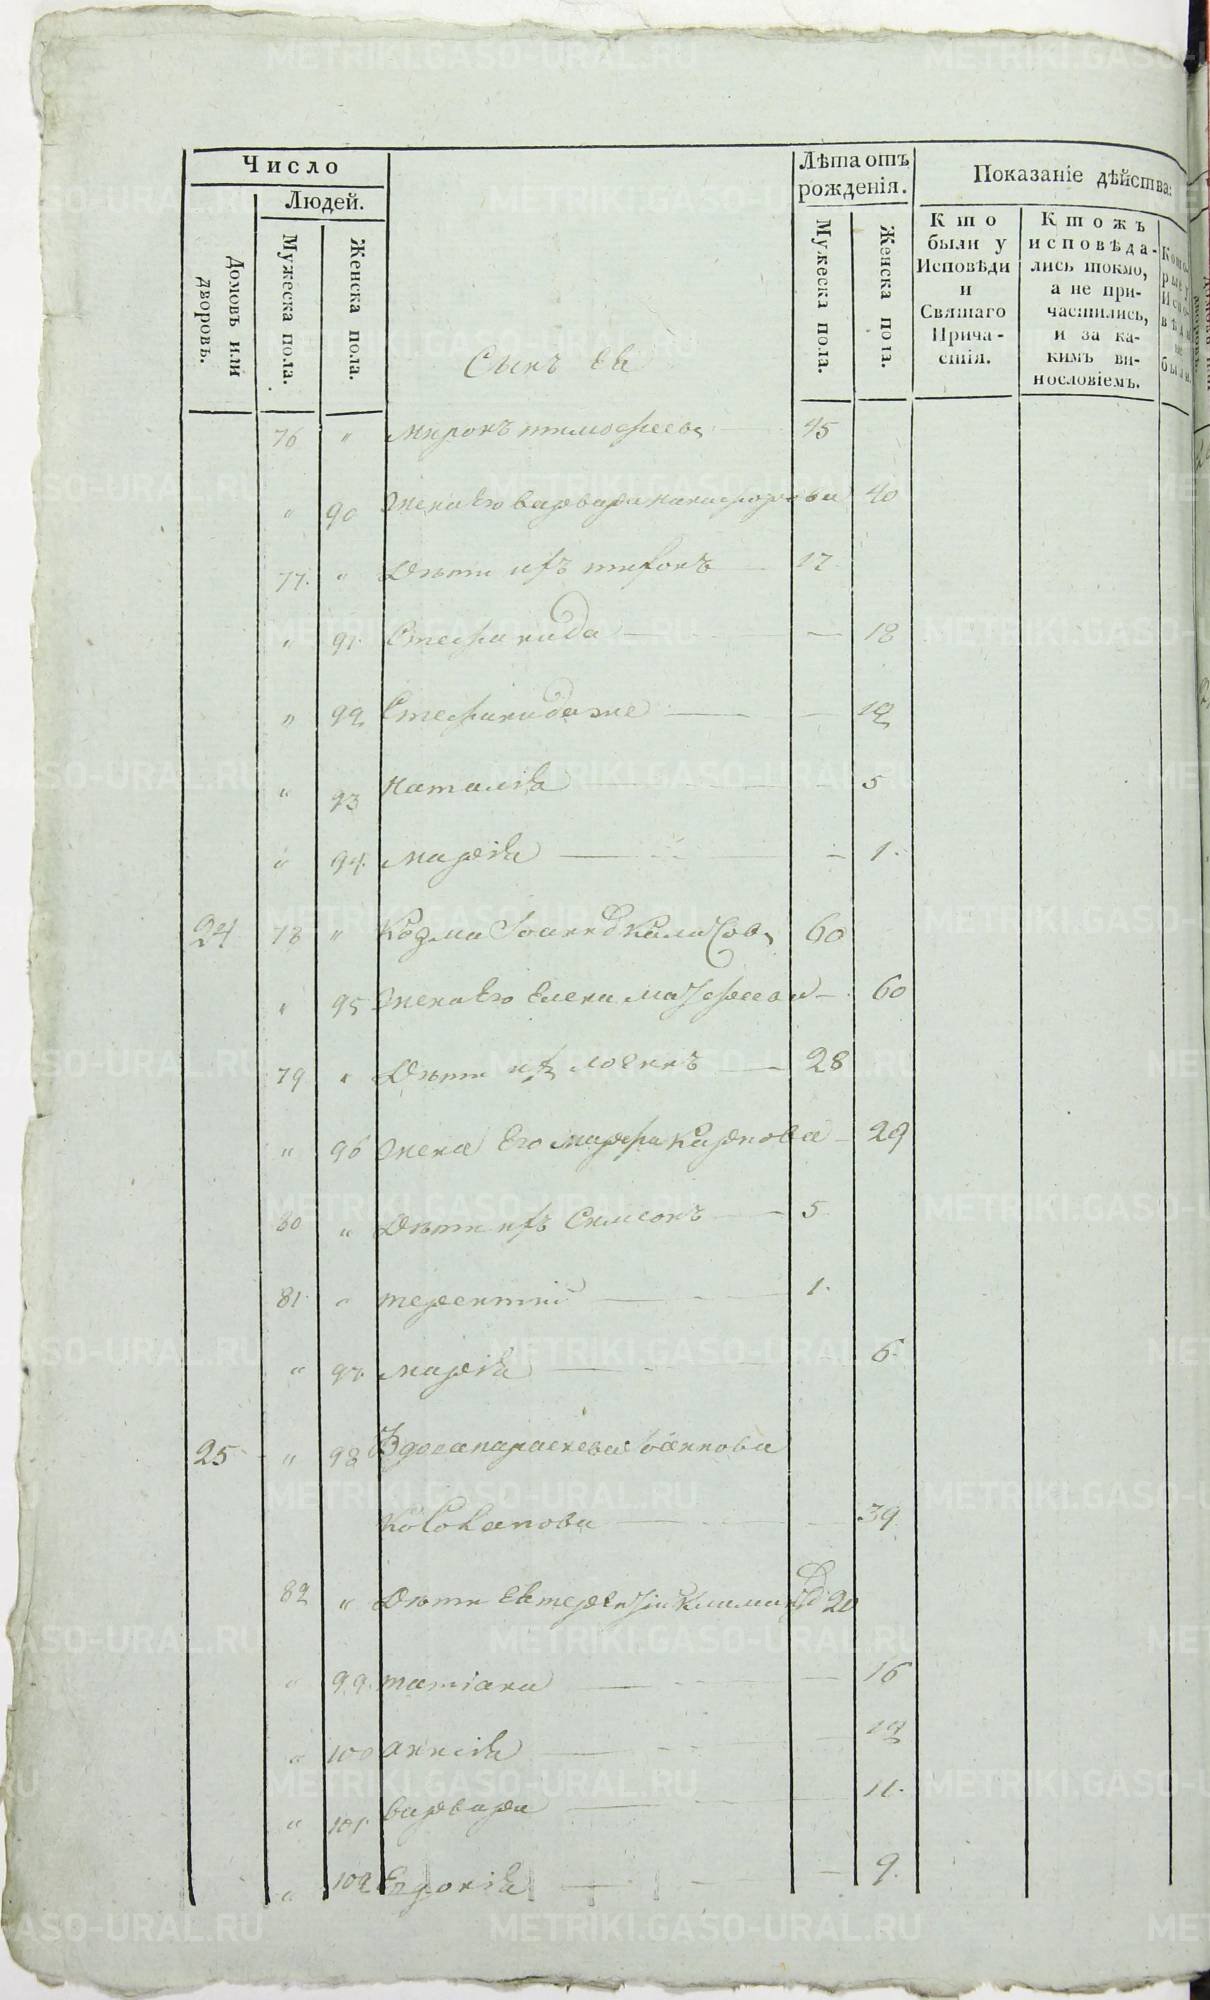 Число
Людей.
Домовъ или дворовъ.
Мужеска пола.
Женска пола.
Лѣта отъ рожденія.
Мужеска пола.
Женска пола.
Показаніе дѣйства:
Кто были у Исповѣди и Святаго Причастія.
Ктожъ исповѣдались токмо, а не причастились, и за какимъ винословіемъ.
Сынъ ея
76 " Миронъ тимофеевъ 45
" 90 Жена Его варвара никифорова 40
77. " Дѣти ихъ тихонъ 17
" 91. Стефанида — — 18
" 92 Стефанида же — — 12
" 93 Наталія 5
" 94. марія — — 1.
24 78 " Козма Iоанновъ 60
" 95 Жена Его Елена — 60
79 " Дѣти ихъ логинъ — 28
" 96 Жена Его марфа карпова — 29
80 " Дѣти ихъ Симеонъ — 5
81 " терентій — 1.
" 97 марія — 6
25 " 98 Вдова параскева Iоаннова
39
82 " Дѣти Ея 20
" 99. татіана — — 16
" 100 анисія — — 12
" 101 варвара — 11.
" 102 Евдокія — — 9.
METRIKI.GASO-URAL.RU